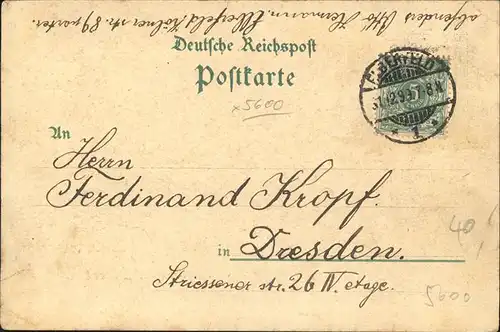 absenders Otto Hermann. Elberfeld Kölner str. 89 parter.
Deutsche Reichspost
Postkarte
x5600
ELBERFELD
31.12.95.7-8N.
* 1 *
An
Herrn
Ferdinand Kropf.
40,
in Dresden.
Striessener str. 26 IV. etage.
5600